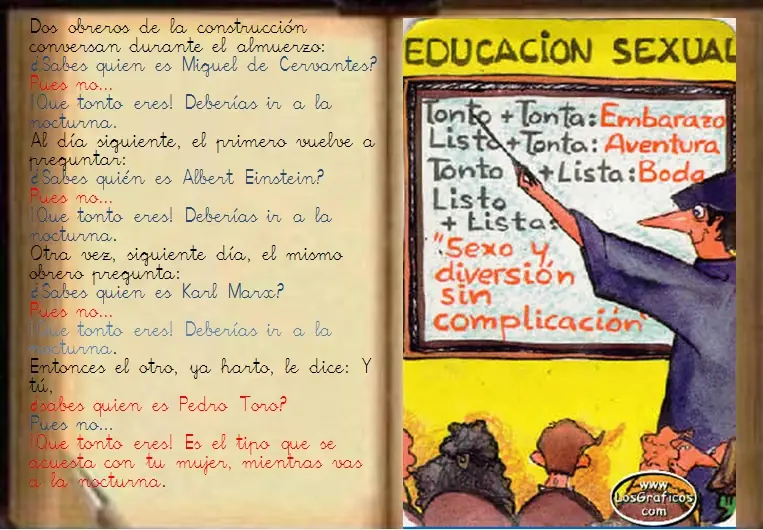 Dos obreros de la construcción
conversan durante el almuerzo:
¿Sabes quien es Miguel de Cervantes?
Pues no...
¡Que tonto eres! Deberías ir a la
nocturna.
Al día siguiente, el primero vuelve a
preguntar:
¿Sabes quién es Albert Einstein?
Pues no...
¡Que tonto eres! Deberías ir a la
nocturna.
Otra vez, siguiente día, el mismo
obrero pregunta:
¿Sabes quien es Karl Marx?
Pues no...
¡Que tonto eres! Deberías ir a la
nocturna.
Entonces el otro, ya harto, le dice: Y
tú,
¿sabes quien es Pedro Toro?
Pues no...
¡Que tonto eres! Es el tipo que se
acuesta con tu mujer, mientras vas
a la nocturna.
EDUCACION SEXUAL
Tonto + Tonta: Embarazo
Listo + Tonta: Aventura
Tonto + Lista: Boda
Listo
+ Lista:
"Sexo y
diversión
sin
complicación"
www.
LosGraficos
com